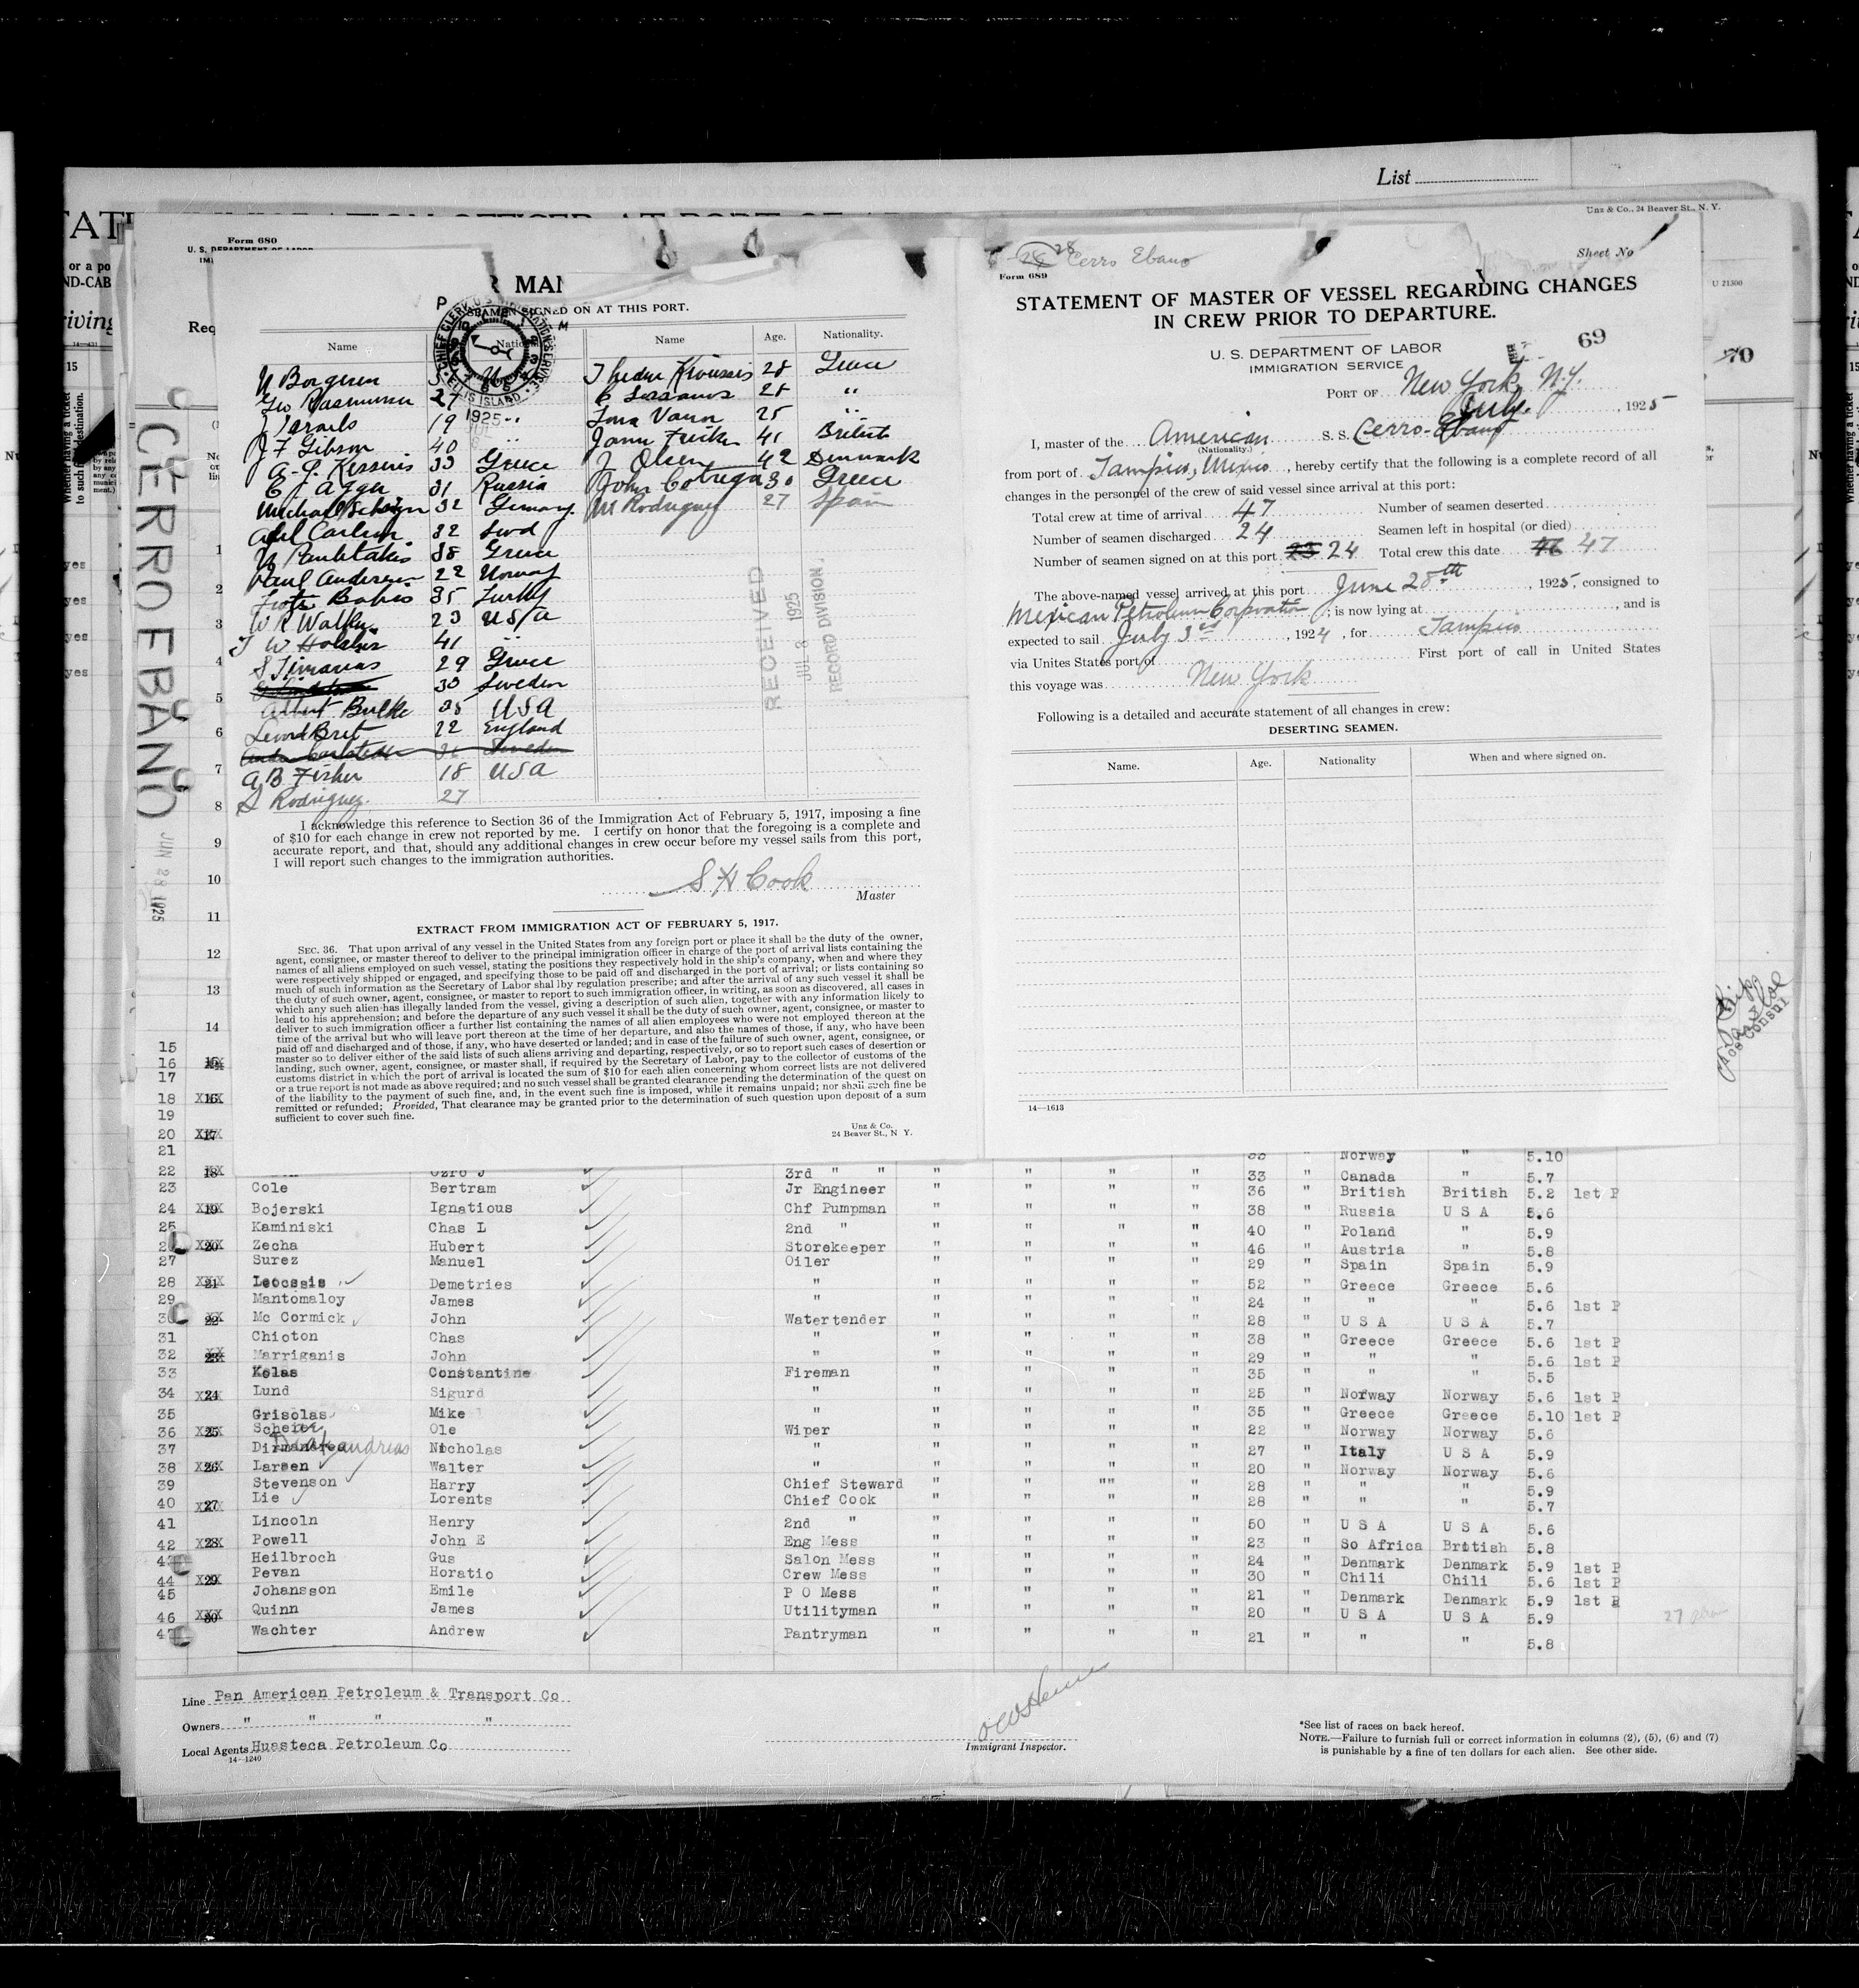 List
Unz & Co., 24 Beaver St., N. Y.
Form 680
U. S. DEPARTMENT OF LABOR
R MAN
SEAMEN SIGNED ON AT THIS PORT.
Name Name Age. Nationality.
N Borgersen
Geo Rasmussen 27 28 "
J Israels 19 " 25 "
J F Gibson 40 " 41 British
A. J. 33 Greece J Olsen 42 Denmark
31 Russia John 30 Greece
Michael 32 Germany M Rodriguez 27 Spain
Axel Carlson 32 Swd
38 Greece
Paul Andersen 22 Norway
35 Turky
W R Walker 23 USA
41 "
29 Greece
30 Sweden
Albert 35 USA
22 England
Sweden
A B Fisher 18 USA
S Rodriguez 27
CERRO EBANO
JUN 28 1925
RECEIVED
JUL 8 1925
RECORD DIVISION
I acknowledge this reference to Section 36 of the Immigration Act of February 5, 1917, imposing a fine
of $10 for each change in crew not reported by me. I certify on honor that the foregoing is a complete and
accurate report, and that, should any additional changes in crew occur before my vessel sails from this port,
I will report such changes to the immigration authorities.
S H Cook
Master
EXTRACT FROM IMMIGRATION ACT OF FEBRUARY 5, 1917.
SEC. 36. That upon arrival of any vessel in the United States from any foreign port or place it shall be the duty of the owner,
agent, consignee, or master thereof to deliver to the principal immigration officer in charge of the port of arrival lists containing the
names of all aliens employed on such vessel, stating the positions they respectively hold in the ship's company, when and where they
were respectively shipped or engaged, and specifying those to be paid off and discharged in the port of arrival; or lists containing so
much of such information as the Secretary of Labor shal lby regulation prescribe; and after the arrival of any such vessel it shall be
the duty of such owner, agent, consignee, or master to report to such immigration officer, in writing, as soon as discovered, all cases in
which any such alien has illegally landed from the vessel, giving a description of such alien, together with any information likely to
lead to his apprehension; and before the departure of any such vessel it shall be the duty of such owner, agent, consignee, or master to
deliver to such immigration officer a further list containing the names of all alien employees who were not employed thereon at the
time of the arrival but who will leave port thereon at the time of her departure, and also the names of those, if any, who have been
paid off and discharged and of those, if any, who have deserted or landed; and in case of the failure of such owner, agent, consignee, or
master so to deliver either of the said lists of such aliens arriving and departing, respectively, or so to report such cases of desertion or
landing, such owner, agent, consignee, or master shall, if required by the Secretary of Labor, pay to the collector of customs of the
customs district in which the port of arrival is located the sum of $10 for each alien concerning whom correct lists are not delivered
or a true report is not made as above required; and no such vessel shall be granted clearance pending the determination of the quest on
of the liability to the payment of such fine, and, in the event such fine is imposed, while it remains unpaid; nor shall such fine be
remitted or refunded; Provided, That clearance may be granted prior to the determination of such question upon deposit of a sum
sufficient to cover such fine.
Unz & Co.
24 Beaver St., N Y.
28 Cerro Ebano
Sheet No
Form 689
STATEMENT OF MASTER OF VESSEL REGARDING CHANGES
IN CREW PRIOR TO DEPARTURE.
69
70
U 21300
U. S. DEPARTMENT OF LABOR
IMMIGRATION SERVICE
PORT OF New York, N.Y.
July, 1925
I, master of the American S. S. Cerro-Ebano
(Nationality.)
from port of Tampico, Mexico, hereby certify that the following is a complete record of all
changes in the personnel of the crew of said vessel since arrival at this port:
Total crew at time of arrival 47 Number of seamen deserted
Number of seamen discharged 24 Seamen left in hospital (or died)
Number of seamen signed on at this port 23 24 Total crew this date 46 47
The above-named vessel arrived at this port June 28th, 1925, consigned to
Mexican Petroleum Corporation; is now lying at , and is
expected to sail July 3rd, 1924, for Tampico
via Unites States port of First port of call in United States
this voyage was New York
Following is a detailed and accurate statement of all changes in crew:
DESERTING SEAMEN.
Name. Age. Nationality When and where signed on.
14—1613
Norway " 5.10
22 Ozro J 3rd " " " " " " 33 " Canada " 5.7
23 Cole Bertram Jr Engineer " " " " 36 " British British 5.2 1st P
24 Bojerski Ignatious Chf Pumpman " " " " 38 " Russia U S A 5.6
25 Kaminiski Chas L 2nd " " " " " 40 " Poland " 5.9
26 Zecha Hubert Storekeeper " " " " 46 " Austria " 5.8
27 Surez Manuel Oiler " " " " 29 " Spain Spain 5.9
28 Leocssis Demetries " " " " " 52 " Greece Greece 5.6
29 Mantomaloy James " " " " " 24 " " " 5.6 1st P
30 Mc Cormick John Watertender " " " " 28 " U S A U S A 5.7
31 Chioton Chas " " " " " 38 " Greece Greece 5.6 1st P
32 Marriganis John " " " " " 29 " " " 5.6 1st P
33 Kolas Constantine Fireman " " " " 35 " " " 5.5
34 Lund Sigurd " " " " " 25 " Norway Norway 5.6 1st P
35 Grisolas Mike " " " " " 35 " Greece Greece 5.10 1st P
36 Scheier Ole Wiper " " " " 22 " Norway Norway 5.6
37 Nicholas " " " " " 27 " Italy U S A 5.9
38 Larsen Walter " " " " " 20 " Norway Norway 5.6
39 Stevenson Harry Chief Steward " " "" " 28 " " " 5.9
40 Lie Lorents Chief Cook " " " " 28 " " " 5.7
41 Lincoln Henry 2nd " " " " " 50 " U S A U S A 5.6
42 Powell John E Eng Mess " " " " 23 " So Africa British 5.8
43 Heilbroch Gus Salon Mess " " " " 24 " Denmark Denmark 5.9 1st P
44 Pevan Horatio Crew Mess " " " " 30 " Chili Chili 5.6 1st P
45 Johansson Emile P O Mess " " " " 21 " Denmark Denmark 5.9 1st P
46 Quinn James Utilityman " " " " 20 " U S A U S A 5.9
47 Wachter Andrew Pantryman " " " " 21 " " " 5.8
Line Pan American Petroleum & Transport Co
Owners " " " "
Local Agents Huasteca Petroleum Co
14—1240
Immigrant Inspector.
*See list of races on back hereof.
NOTE.—Failure to furnish full or correct information in columns (2), (5), (6) and (7)
is punishable by a fine of ten dollars for each alien. See other side.